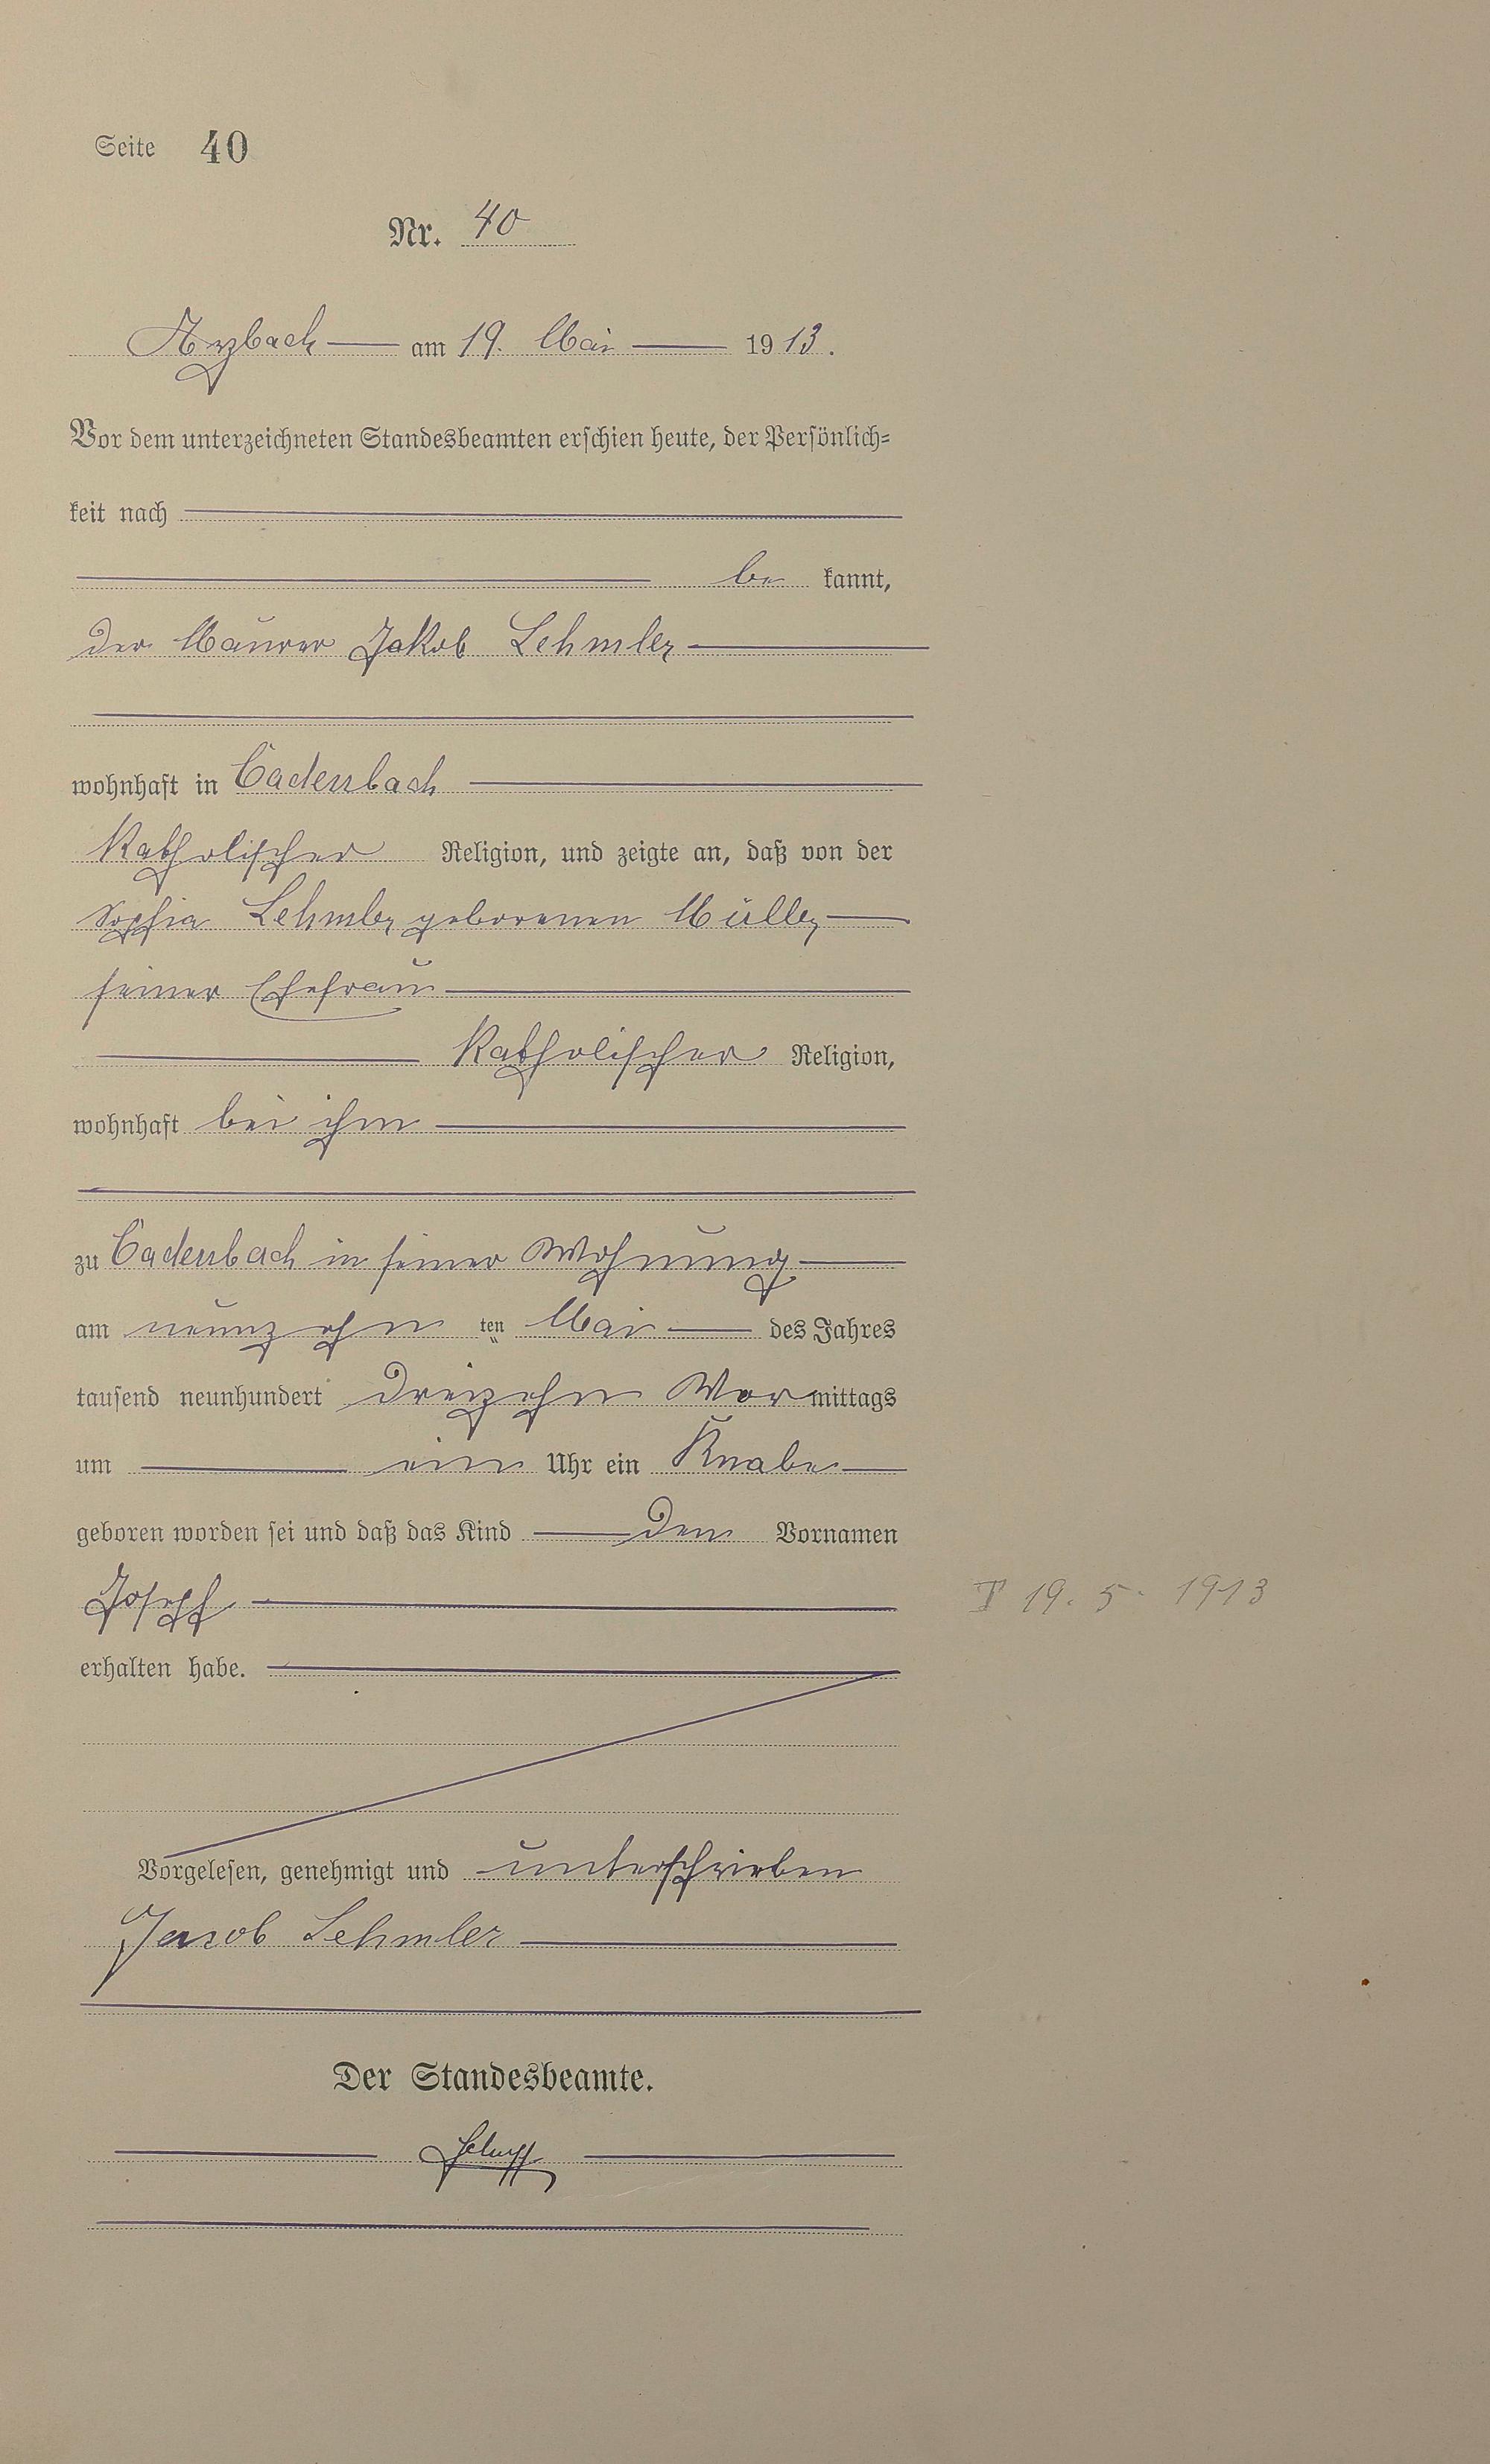 Seite 40
Nr. 40
Arzbach am 19. Mai 1913.
Vor dem unterzeichneten Standesbeamten erschien heute, der Persönlich-
keit nach
be kannt,
der Maurer Jakob Lehmler
wohnhaft in Cadenbach
katholischer Religion, und zeigte an, daß von der
Sophia Lehmler geborenen Müller
seiner Ehefrau
katholischer Religion,
wohnhaft bei ihm
zu Cadenbach in seiner Wohnung
am neunzehn ten Mai des Jahres
tausend neunhundert dreizehn Vormittags
um ein Uhr ein Knabe
geboren worden sei und daß das Kind den Vornamen
Joseph
19. 5. 1913
erhalten habe.
Vorgelesen, genehmigt und unterschrieben
Jacob Lehmler
Der Standesbeamte.